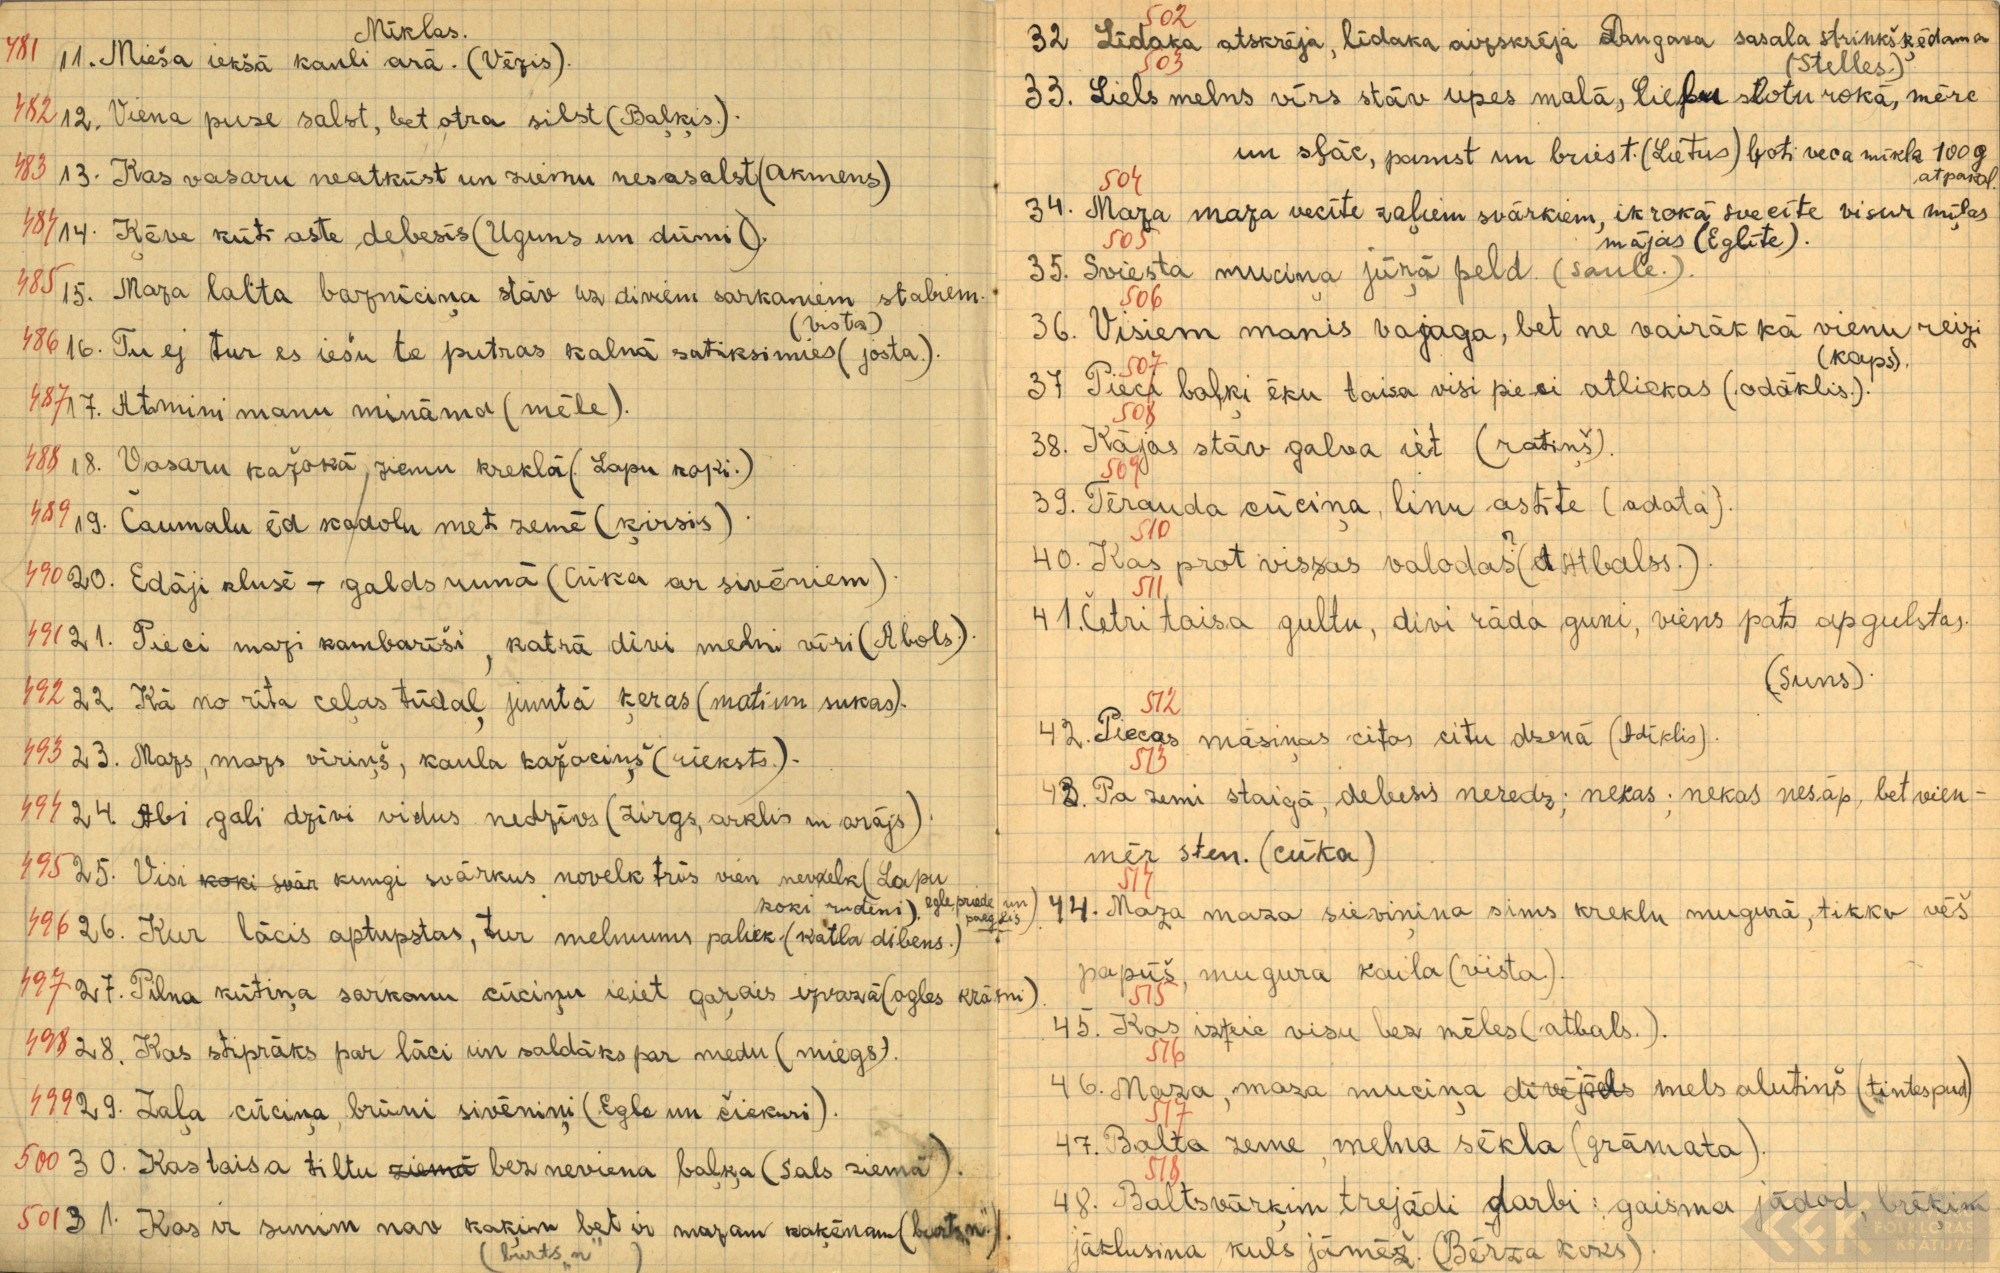 Mīklas.
481 11. Mieša iekšā kauli arā. (Vēzis).
482 12. Viena puse salst, bet otra silst (Baļķis.).
483 13. Kas vasaru neatkūst un ziemu nesasalst (Akmens)
484 14. Ķēve kūtī aste debesīs (Uguns un dūmi).
485 15. Maza balta baznīciņa stāv uz diviem sarkaniem stabiem.
(vista)
486 16. Tu ej tur es iešu te putras kalnā satiksimies (josta.).
487 17. Atmini manu mināmo (mēle).
488 18. Vasaru kažokā, ziemu kreklā (Lapu koki.)
489 19. Čaumalu ēd kodolu met zemē (ķirsis).
490 20. Edāji klusē – galds runā (Cūka ar sivēniem).
491 21. Pieci mazi kambarīši, katrā divi melni vīri (Abols.).
492 22. Kā no rīta ceļas tūdaļ jumtā ķeras (mati un sukas).
493 23. Mazs, mazs vīriņš, kaula kažociņš (rieksts.).
494 24. Abi gali dzīvi vidus nedzīvs (Zirgs, arklis un arājs).
495 25. Visi koki svār kungi svārkus novelk trīs vien nevelk (Lapu
koki rudenī), egle, priede un
paeglis
496 26. Kur lācis aptupstas, tur melnums paliek (katla dibens.)
497 27. Pilna kūtiņa sarkanu cūciņu ieiet garais izvazā (ogles krāsnī).
498 28. Kas stiprāks par lāci un saldāks par medu (miegs).
499 29. Zaļa cūciņa, brūni sivēniņi (Egle un čiekuri).
500 30. Kas taisa tiltu ziemā bez neviena baļķa (Sals ziemā).
501 31. Kas ir sunim nav kaķim bet ir mazam kaķēnam (burts „n".).
(burts „n")
502
32 Līdaka atskrēja, līdaka aizskrēja Daugava sasala strinkšķēdama
(Stelles.)
503
33. Liels melns vīrs stāv upes malā, liepu slotu rokā, mēre
un sļāc, pamst un briest. (Lietus) ļoti veca mīkla 100 g
atpakaļ.
504
34. Maza maza vecīte zaļiem svārkiem, ik rokā svecīte visur mīļas
mājas (Eglīte).
505
35. Sviesta muciņa jūŗā peld. (saule.).
506
36. Visiem manis vajaga, bet ne vairāk kā vienu reizi
(kaps).
507
37 Pieci baļķi ēku taisa visi pieci atliekas (adāklis.).
508
38. Kājas stāv galva iet (ratiņš).
509
39. Tērauda cūciņa, linu astīte (adata).
510
40. Kas prot vissas valodas? (Atbalss.).
511
41. Četri taisa gultu, divi rāda guni, viens pats apgulstas.
(Suns).
512
42. Piecas māsiņas cita citu dzenā (Adīklis).
513
43. Pa zemi staigā, debesis neredz; nekas; nekas nesāp, bet vien-
mēr sten. (cūka)
514
44. Maza maza sieviņiņa sims kreklu mugurā, tikko vēš
papūš, mugura kaila (vista).
515
45. Kas izteic visu bez mēles (atbals.).
516
46. Maza, maza muciņa divējāds mels alutiņš (tintespud)
517
47. Balta zeme, melna sēkla (grāmata).
518
48. Baltsvārķim trejādi darbi: gaisma jādod, brēķim
jāklusina, kuls jāmēž. (Bērza koks).
LFK FOLKLORAS KRĀTUVE